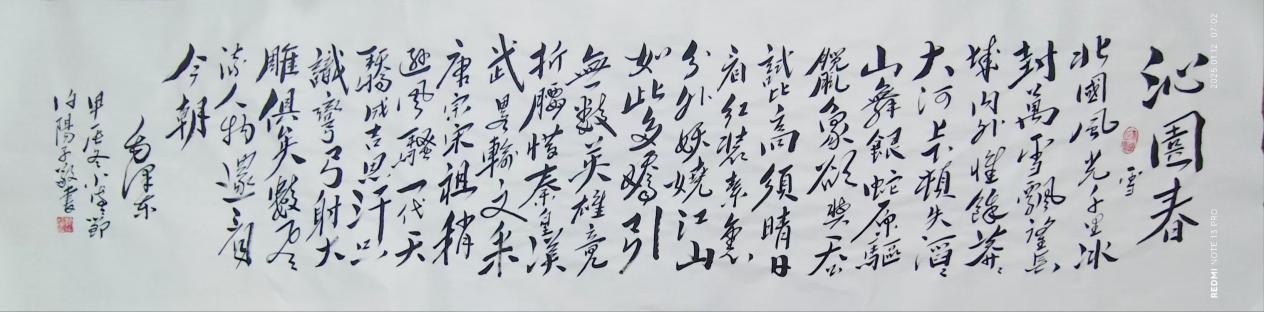 沁園春
雪
北國風光千里冰
封萬雪飄望長
城内外惟餘莽々
大河上下頓失滔々
山舞銀蛇原驅
臘象欲與天公
試比高須晴日
看紅裝素裹
分外妖嬈江山
如此多嬌引
無數英雄竟
折腰惜秦皇漢
武畧輸文采
唐宗宋祖稍
遜風騷一代天
驕成吉思汗只
識彎弓射大
雕俱矣數風
流人物還看
今朝
毛澤東
甲辰冬小寒節
陽子敬書
REDMI NOTE 13 PRO
2025.01.12 07:02